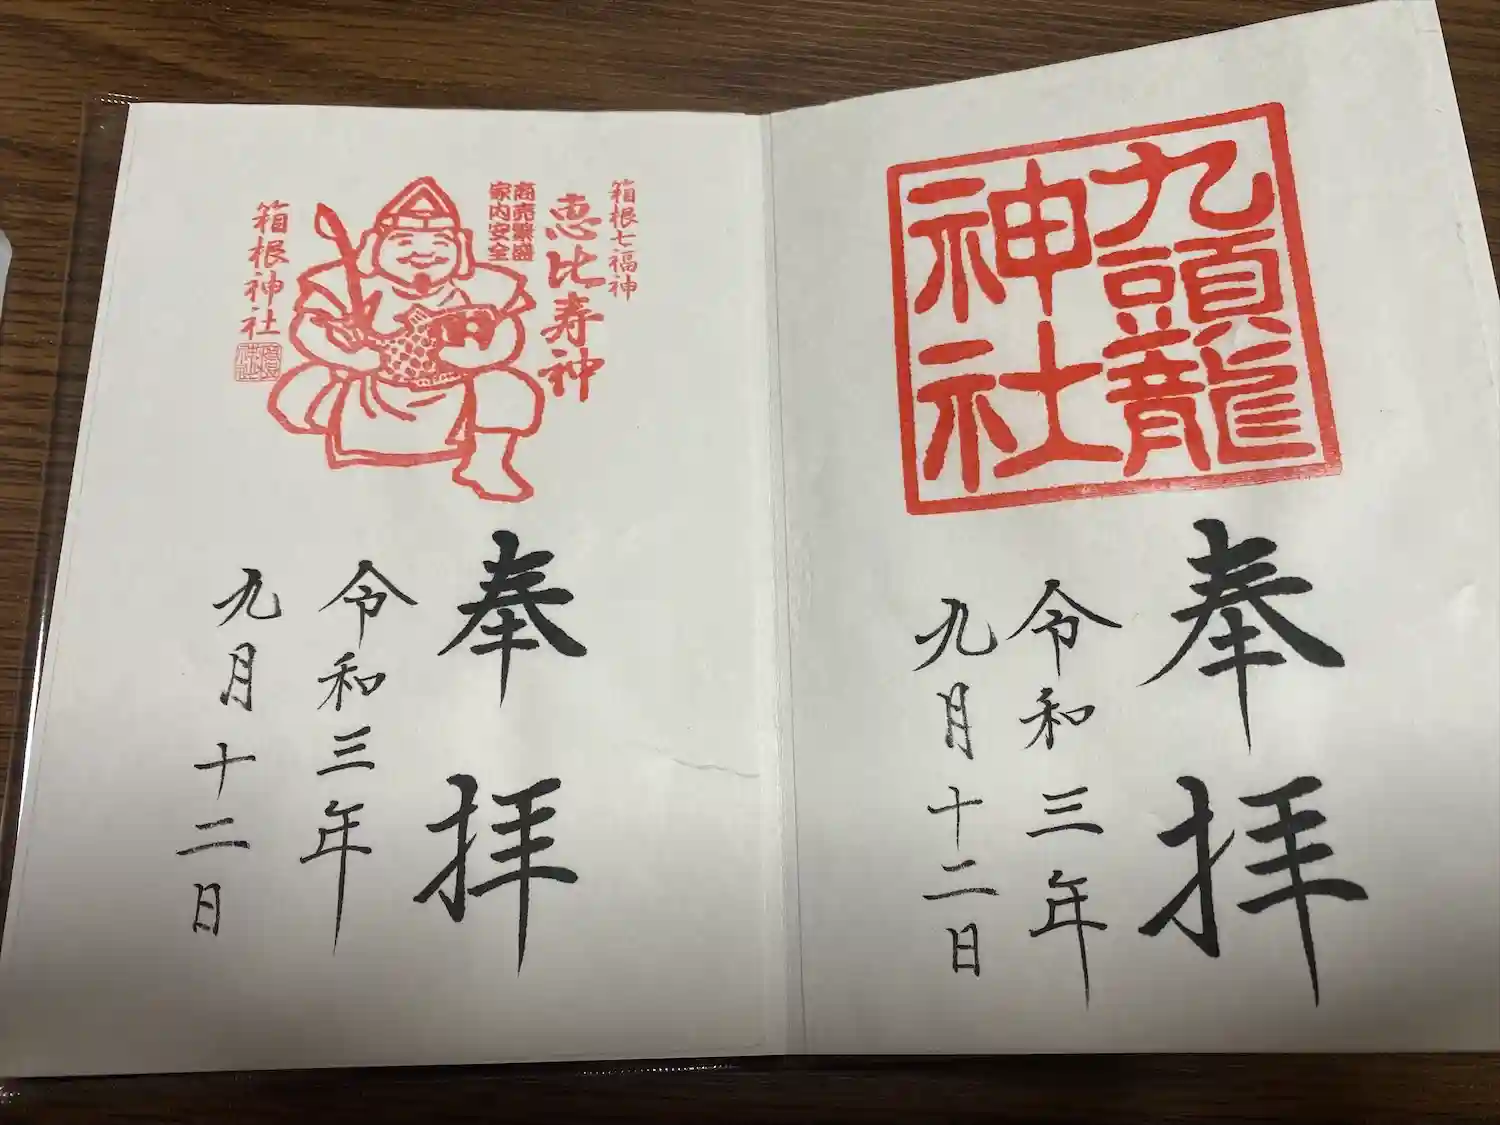 九頭龍
神社
奉拝
令和三年
九月十二日
箱根七福神
恵比寿神
商売繁盛
家内安全
箱根神社
奉拝
令和三年
九月十二日